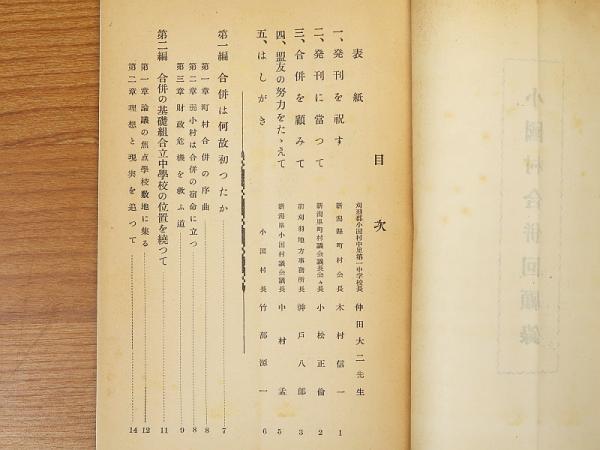 小國村合併回顧錄
目次
表紙 刈羽郡小国村中里第一中学校長 仲田大二先生
一、発刊を祝す 新潟縣町村会長 木村信一 1
二、発刊に當つて 新潟県町村議会議長会々長 小松正倫 2
三、合併を顧みて 前刈羽地方事務所長 神戸八郎 3
四、盟友の努力をたゝえて 新潟県小国村議会議長 中村孟 5
五、はしがき 小国村長 竹部源一 6
第一編 合併は何故初つたか 7
第一章 町村合併の序曲 8
第二章 弱小村は合併の宿命に立つ 8
第三章 財政危機を救ふ道 9
第二編 合併の基礎組合立中學校の位置を繞つて 11
第一章 論議の焦点學校敷地に集る 12
第二章 理想と現実を追つて 14